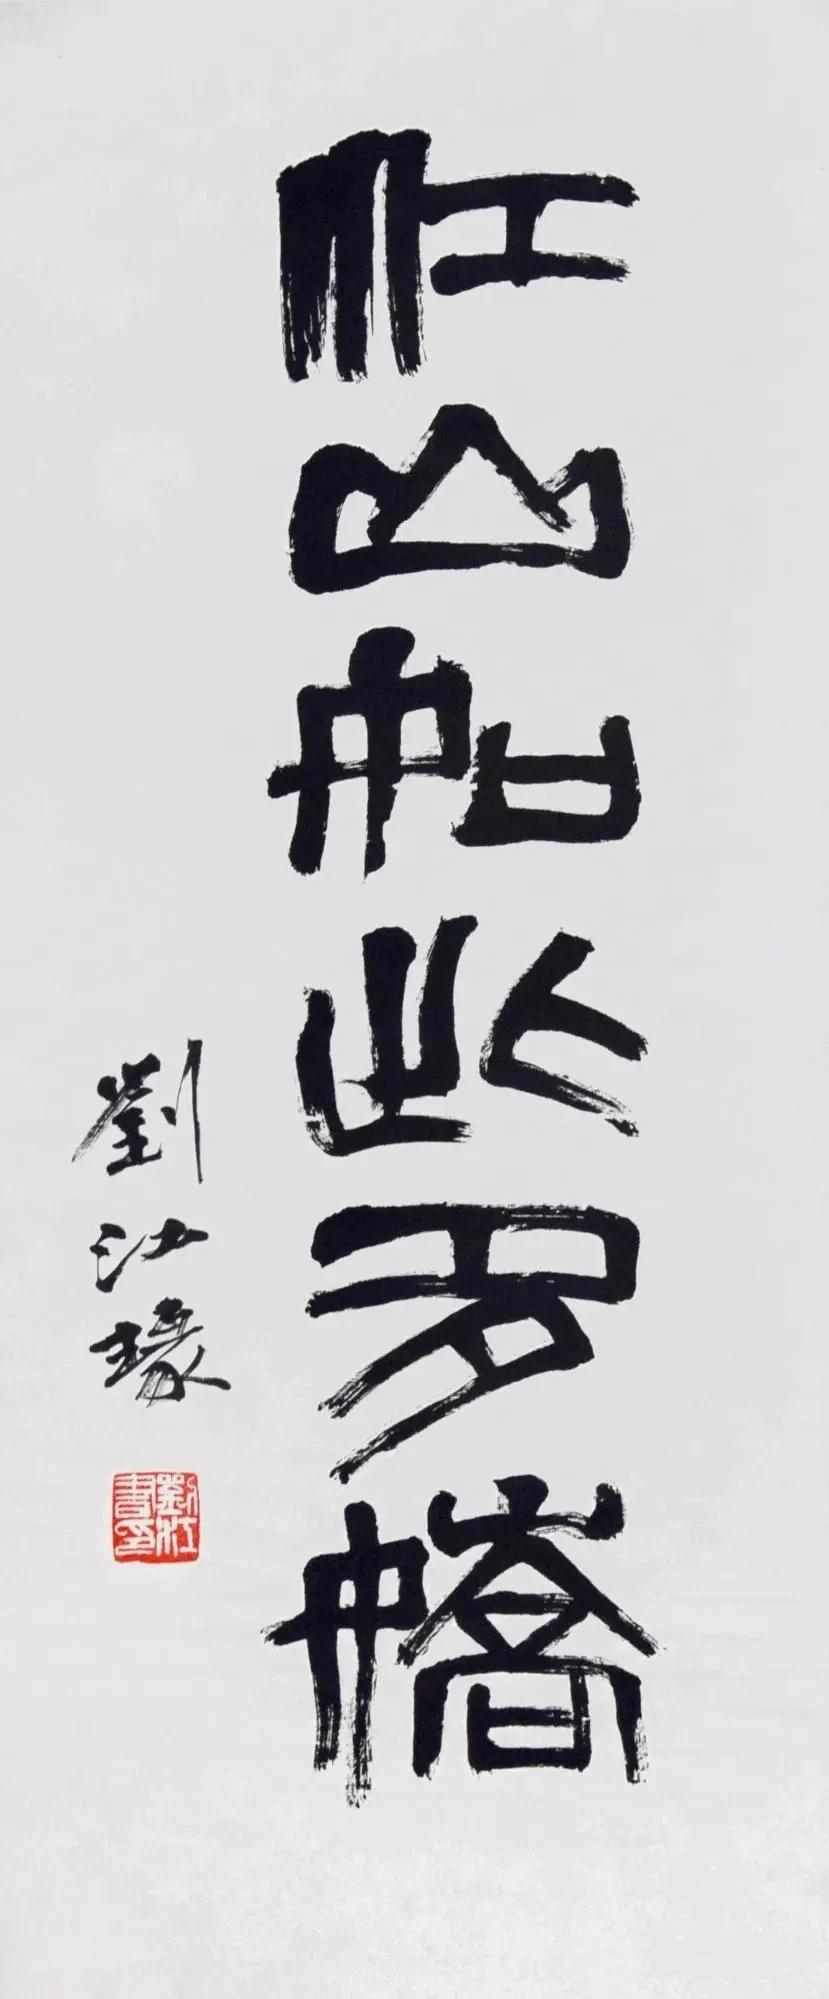 江山如此多嬌
劉江篆
劉江書印